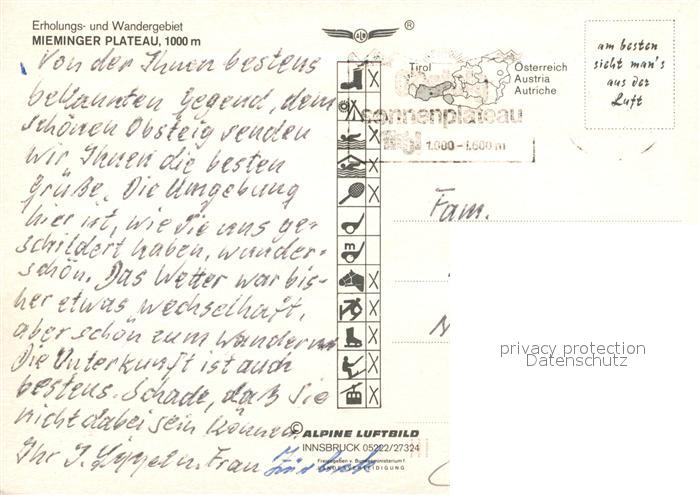 Erholungs- und Wandergebiet
MIEMINGER PLATEAU, 1000 m
ALM
®
Von der Ihnen bestens
bekannten Gegend, dem
schönen Obsteig senden
wir Ihnen die besten
Grüße. Die Umgebung
hier ist, wie Sie uns ge-
schildert haben, wunder-
schön. Das Wetter war bis-
her etwas wechselhaft,
aber schön zum Wandern.
Die Unterkunft ist auch
bestens. Schade, daß Sie
nicht dabei sein können
Ihr J. u. Frau
Tirol
Österreich
Austria
Autriche
sonnenplateau
1.000 - 1.600 m
am besten
sieht man's
aus der
Luft
m
Fam.
N
privacy protection
Datenschutz
© ALPINE LUFTBILD
INNSBRUCK 05222/27324
Freigegeben v. Bundesministerium f.
LANDESVERTEIDIGUNG